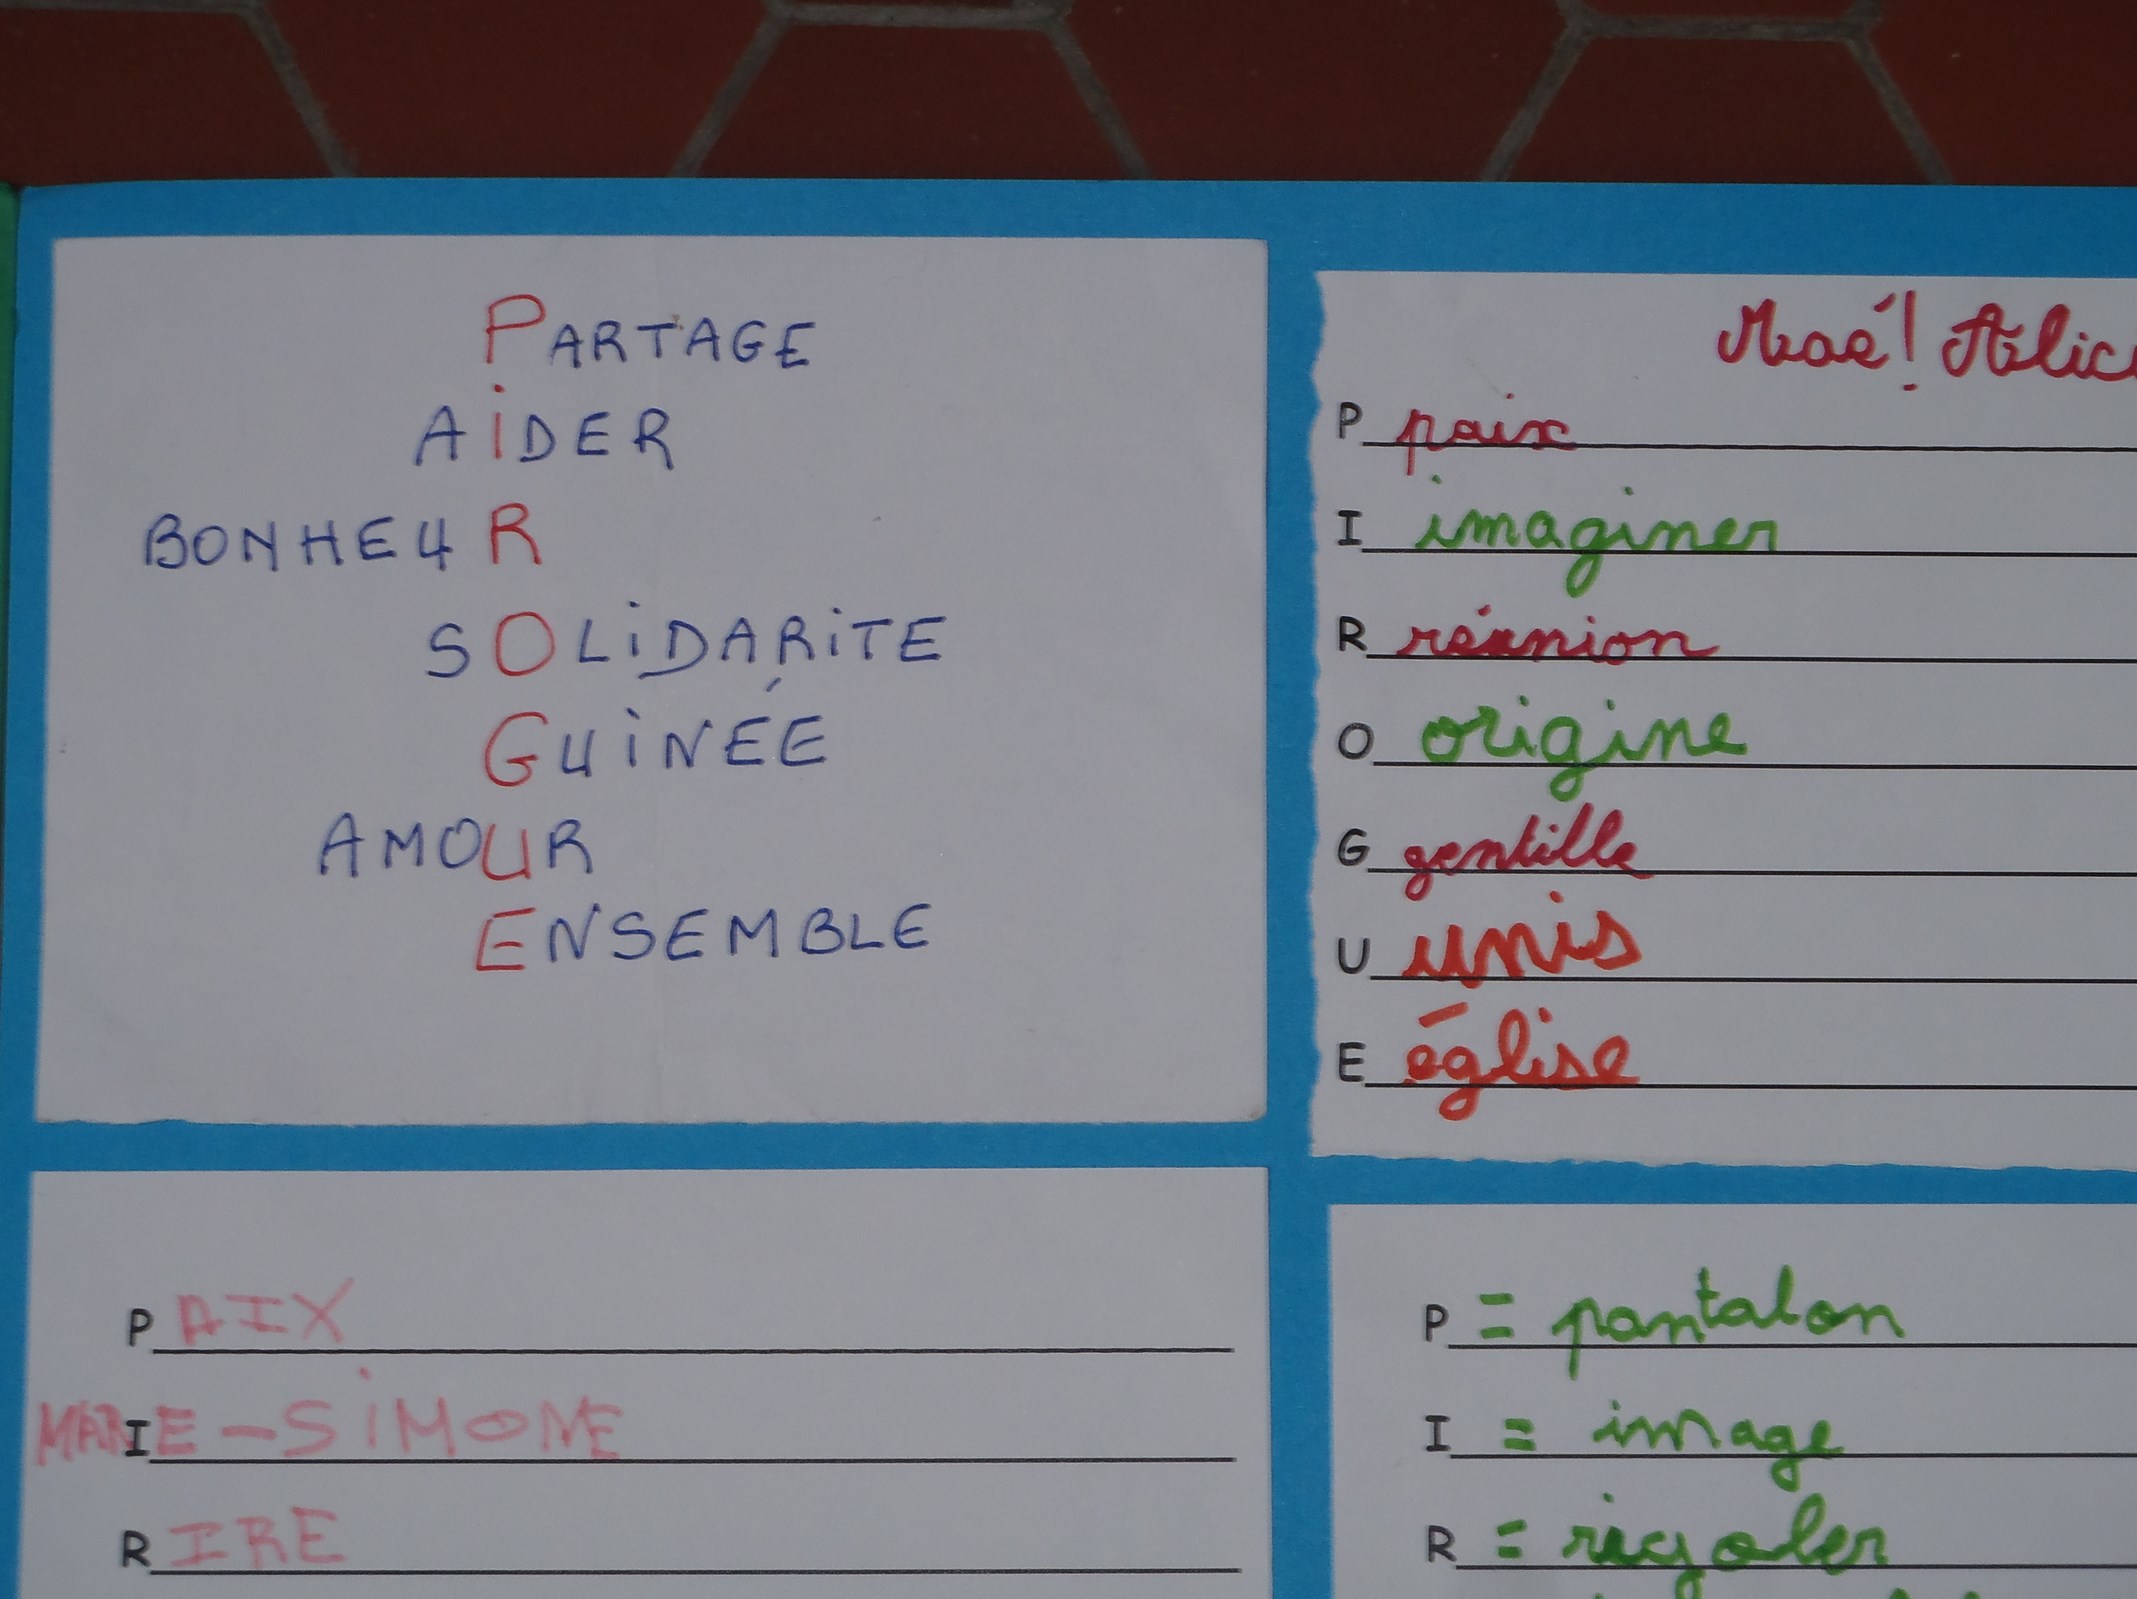 PARTAGE
AiDER
BONHEUR
SOLiDARiTE
GUiNÉE
AMOUR
ENSEMBLE
Maé! Alic
P paix
I imaginer
R réunion
O origine
G gentille
U unis
E église
PAIX
MARIE-SiMONE
RIRE
P = pantalon
I = image
R = rigoler